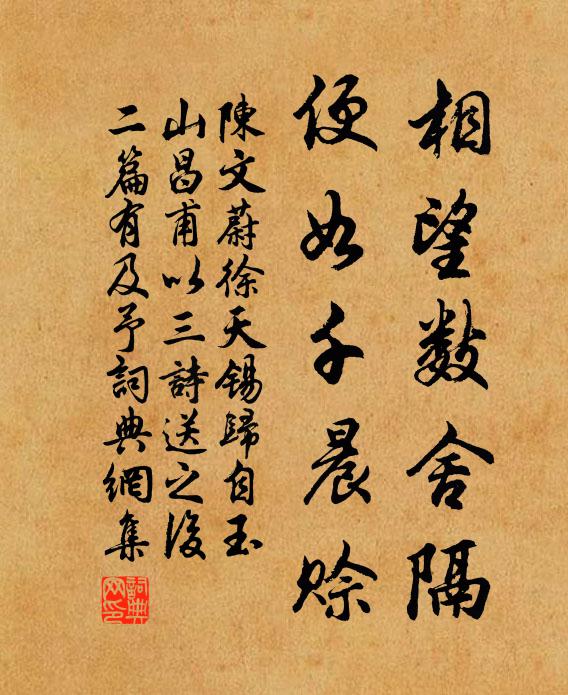 相望數舍隔
便如千晨賒
陳文蔚徐天錫歸自玉
山昌甫以三詩送之後
二篇有及予詞典網集
詞典網印